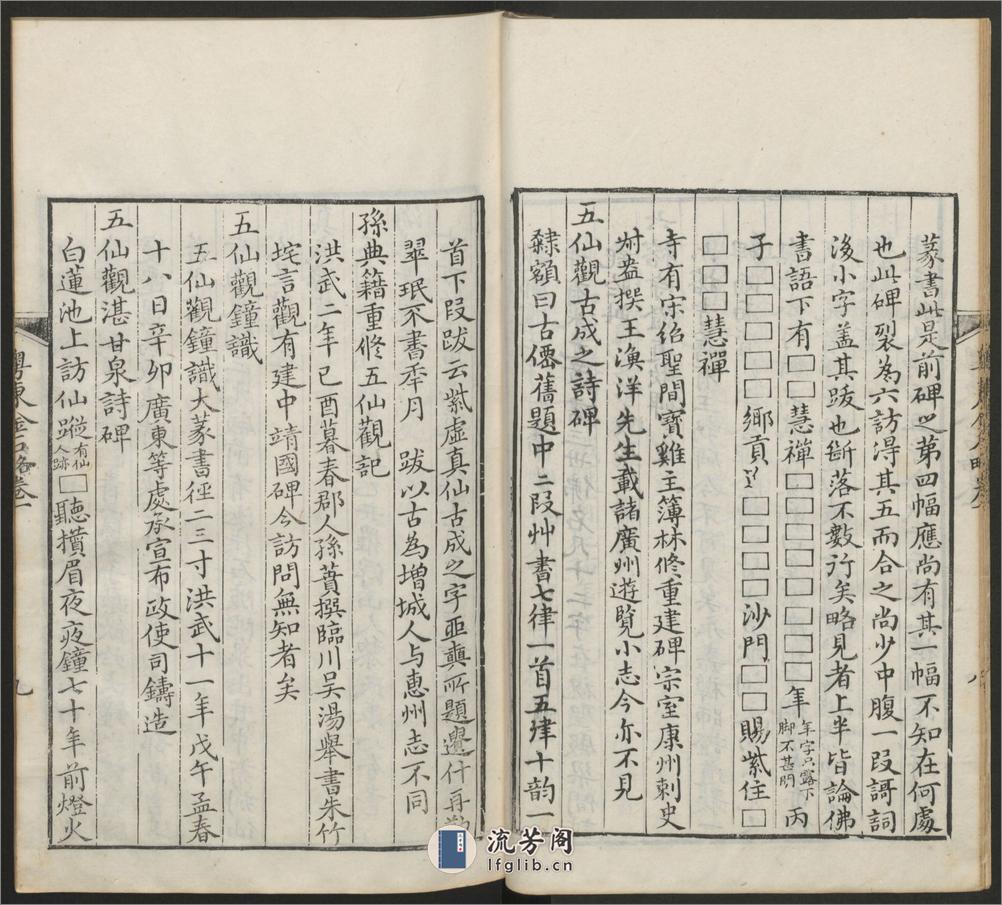 篆書此是前碑之第四幅應尚有其一幅不知在何處
也此碑裂為六訪得其五而合之尚少中腹一段謌詞
後小字盖其跋也斷落不數行矣略見者上半皆論佛
書語下有□□慧禪□□□□□□□年年字只露下脚不甚明丙
子□□□□□鄉貢□□□□□沙門□□賜紫住□
□□□慧禪
寺有宋紹聖間寶雞主簿林修重建碑宗室康州刺史
𡬶盎撰王漁洋先生載諸廣州遊覽小志今亦不見
五仙觀古成之詩碑
隸額曰古僊舊題中二段艸書七律一首五律十韵一
首下段跋云紫虛真仙古成之字亞奭所題遷什再勒
翠珉不書年月 跋以古為增城人与惠州志不同
孫典籍重修五仙觀記
洪武二年己酉暮春郡人孫蕡撰臨川吴湯舉書朱竹
垞言觀有建中靖國碑今訪問無知者矣
五仙觀鐘識
五仙觀鐘識大篆書徑二三寸洪武十一年戊午孟春
十八日辛卯廣東等處承宣布政使司鑄造
五仙觀湛甘泉詩碑
白蓮池上訪仙蹤有仙人跡□聽攢眉夜夜鐘七十年前燈火
粤東金石略卷一
九
流芳阁
lfglib.cn